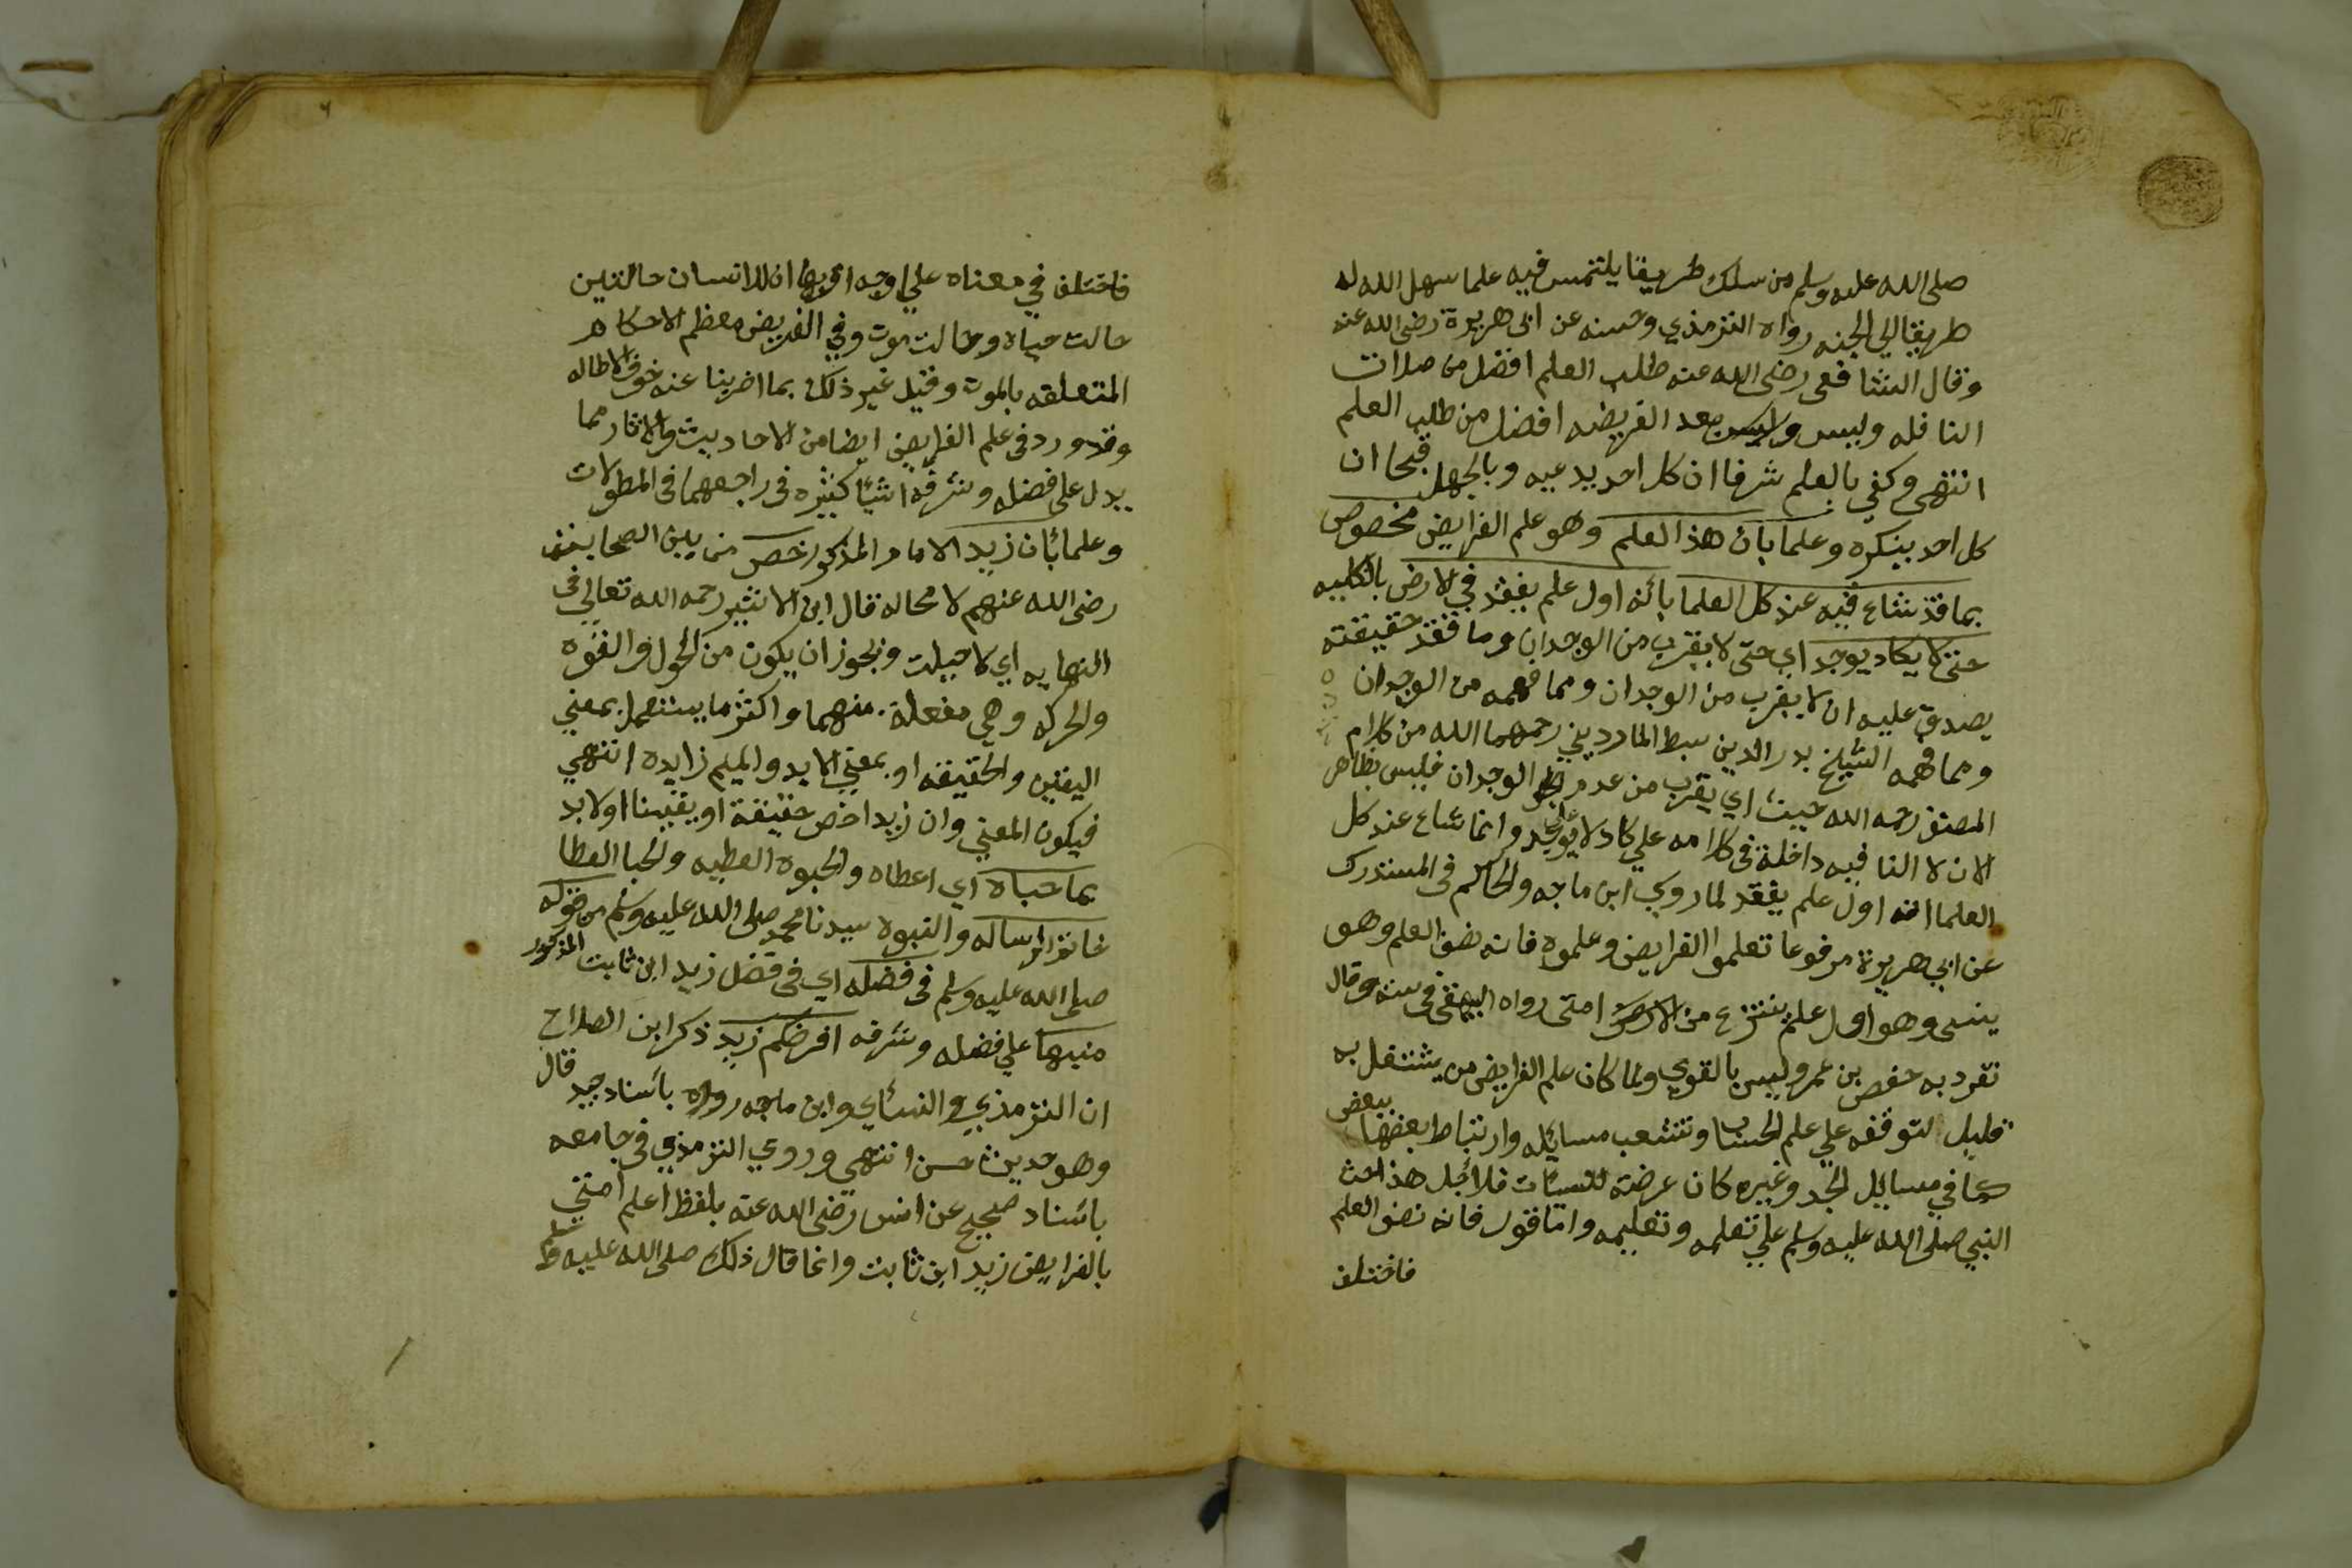 صلى الله عليه وسلم من سلك طريقا يلتمس فيه علما سهل الله له
طريقا الي الجنه رواه الترمذي وحسنه عن ابى هريرة رضى الله عنه
وقال الشافعى رضى الله عنه طلب العلم افضل من صلات
النافله وليس وليس بعد الفريضه افضل من طلب العلم
انتهى وكفي بالعلم شرفا ان كل احد يدعيه وبالجهل قبحا ان
كل احد ينكره وعلما بان هذا العلم وهو علم الفرايض مخصوص
بما قد شاع فيه عند كل العلما بانه اول علم يفقد في الارض بالكليه
حتى لا يكاد يوجد اي حتى لا يقرب من الوجدان وما فقد حقيقته
يصدق عليه ان لا يقرب من الوجدان ومما فهمه من الوجدان
ومما فهمه الشيخ بدر الدين سبط المارديني رحمهما الله من كلام
المصنف رحمه الله حيث اي يقرب من عدم الوجدان فليس بظاهر
الان لا النافيه داخلة فى كلامه علي كاد لا علي يوجد وانما شاع عند كل
العلما انه اول علم يفقد لما روي ابن ماجه والحاكم فى المستدرك
عن ابي هريرة مرفوعا تعلموا الفرايض وعلموه فانه نصف العلم وهو
ينسى وهو اول علم ينتزع من الارض امتى رواه البيهقى فى سننه وقال
تفرد به حفص بن عمر وليس بالقوي ولما كان علم الفرايض من يشتغل به
قليل لتوقفه علي علم الحساب وتشعب مسايله وارتباط بعضها ببعض
كما في مسايل الجد وغيره كان عرضة للنسيات فلاجل هذا حث
النبي صلى الله عليه وسلم علي تعلمه وتعليمه واما قوله فانه نصف العلم
فاختلف
فاختلف في معناه علي اوجه اقربها ان للانسان حالتين
حالت حياه وحالت موت وفي الفريض معظم الاحكام
المتعلقه بالموت وقيل غير ذلك بما اضربنا عنه خوف الاطاله
وقد ورد فى علم الفرايض ايضا من الاحاديث والاثار مما
يدل على فضله وشرفه اشيا كثيره فى راجعهما فى المطولات
وعلما بان زيد الامام المذكور خص من بين الصحابه
رضى الله عنهم لا محاله قال ابن الاثير رحمه الله تعالي فى
النهايه اي لا حيلت ويجوز ان يكون من الحول والقوه
والحركه وهي مفعلة منهما واكثر ما يستعمل بمعني
اليقين والحقيقه او بمعني لابد والميم زايده انتهي
فيكون المعني وان زيد اخص حقيقة او يقينا او لا بد
بما حباه اي اعطاه والحبوه العطيه والحبا العطا
خاتم الرساله والنبوه سيدنا محمد صلى الله عليه وسلم من قوله
صلى الله عليه وسلم فى فضله اي فى فضل زيد ابن ثابت المذكور
منبها علي فضله وشرفه افرضكم زيد ذكر ابن الصلاح
ان الترمذي والنسائي وابن ماجه رووه باسناد جيد قال
وهو حديث حسن انتهى وروي الترمذي فى جامعه
باسناد صحيح عن انس رضى الله عنه بلفظ اعلم امتي
بالفرايض زيد ابن ثابت وانما قال ذلك صلى الله عليه